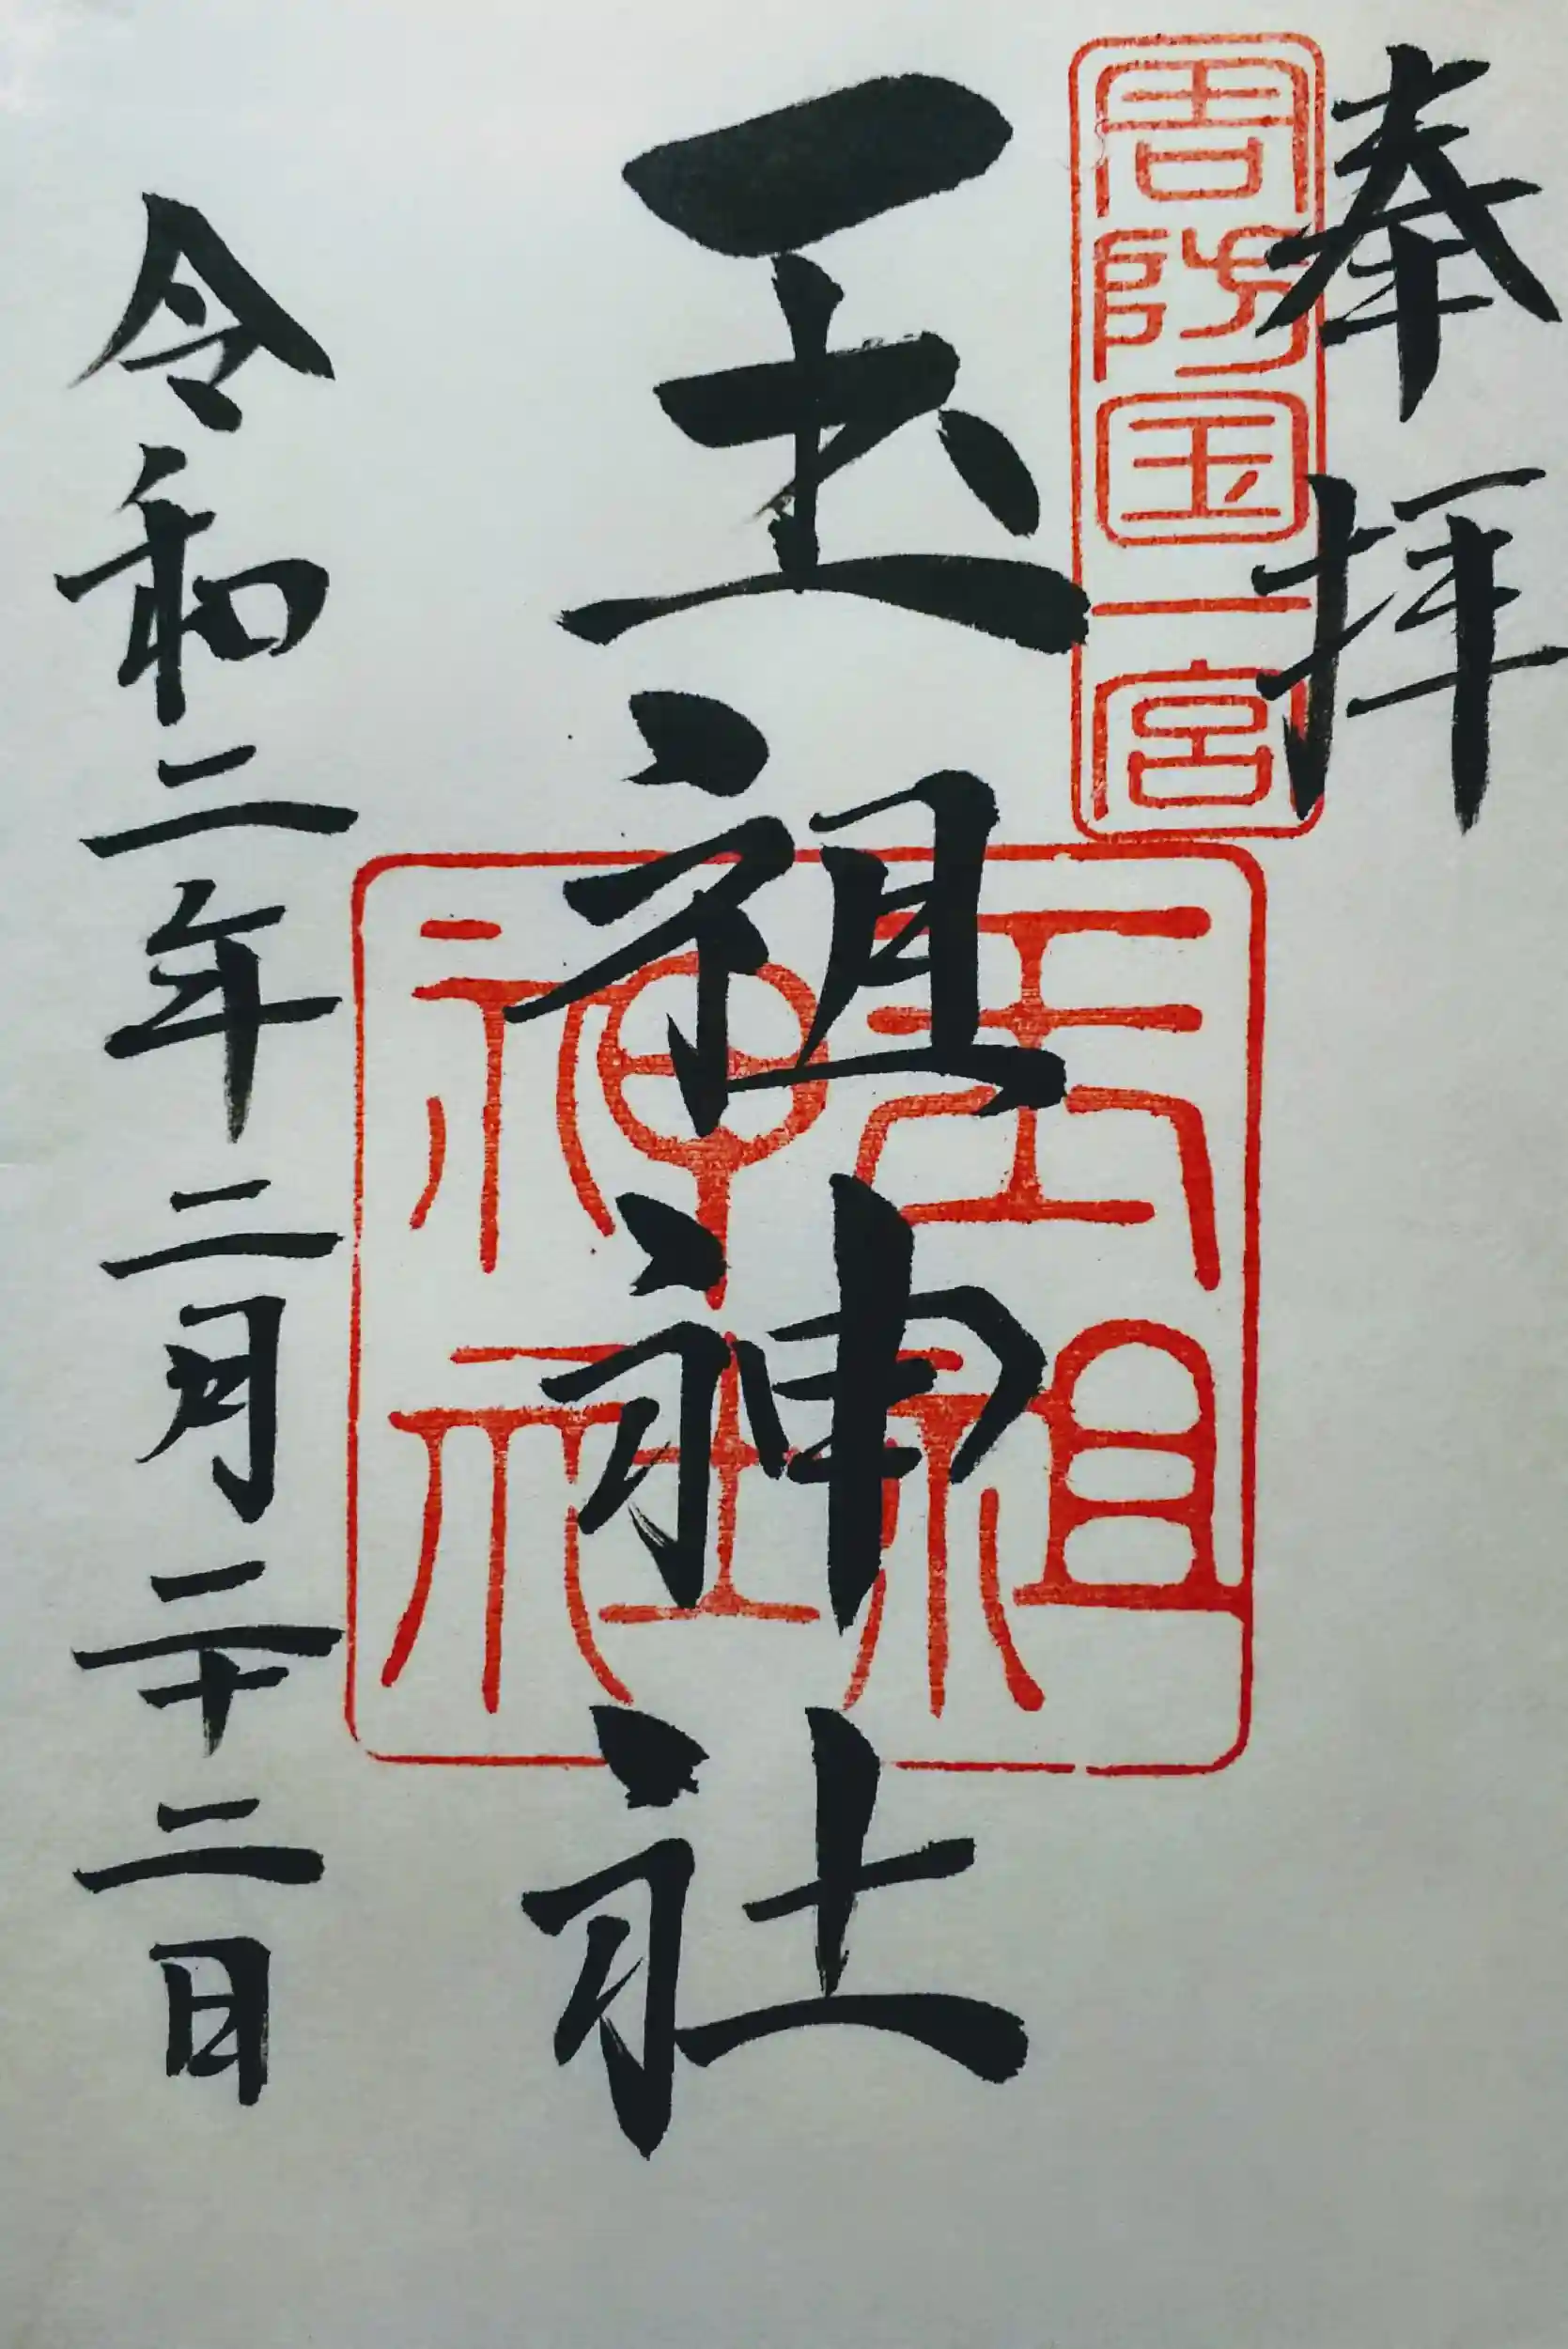 奉拝
周防国一宮
玉祖神社
玉祖神社
令和二年二月二十二日